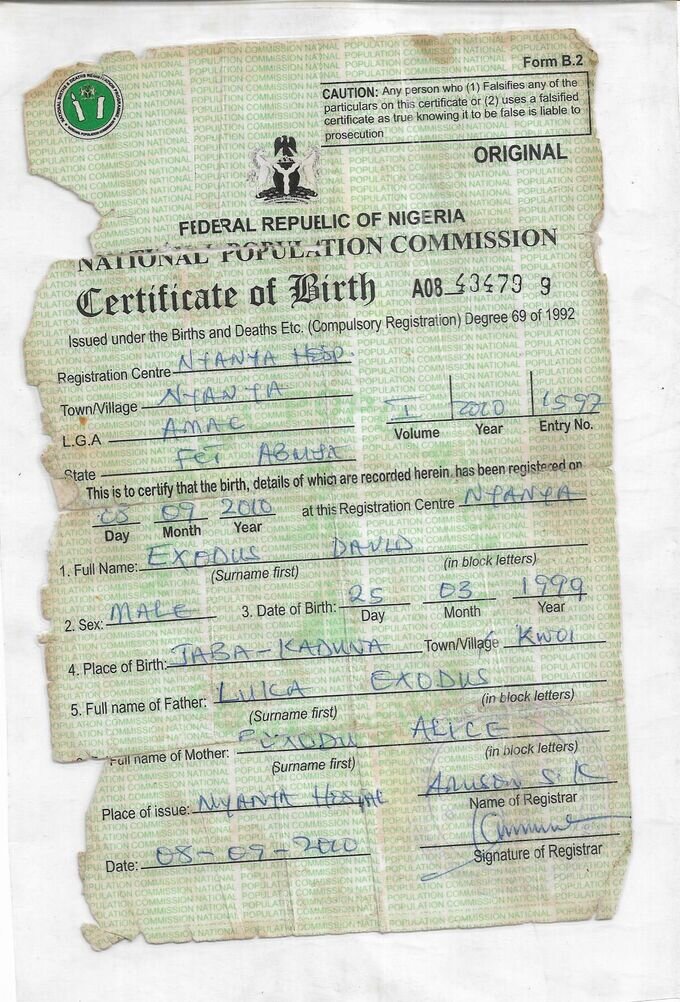 Form B.2
CAUTION: Any person who (1) Falsifies any of the
particulars on this certificate or (2) uses a falsified
certificate as true knowing it to be false is liable to
prosecution
ORIGINAL
FEDERAL REPUBLIC OF NIGERIA
NATIONAL POPULATION COMMISSION
Certificate of Birth A08 43479 9
Issued under the Births and Deaths Etc. (Compulsory Registration) Degree 69 of 1992
Registration Centre NYANYA HOSP.
Town/Village NYANYA
L.G.A AMAC
I 2010 1597
Volume Year Entry No.
State FCT ABUJA
This is to certify that the birth, details of which are recorded herein, has been registered on
08 09 2010 at this Registration Centre NYANYA
Day Month Year
1. Full Name: EXODUS DAVID
(Surname first) (in block letters)
2. Sex: MALE 3. Date of Birth: 25 03 1999
Day Month Year
4. Place of Birth: JABA-KADUNA Town/Village KWOI
5. Full name of Father: LUKA EXODUS
(Surname first) (in block letters)
Full name of Mother: ALICE
(Surname first) (in block letters)
Place of issue: NYANYA
Name of Registrar
Date: 08-09-2010
Signature of Registrar